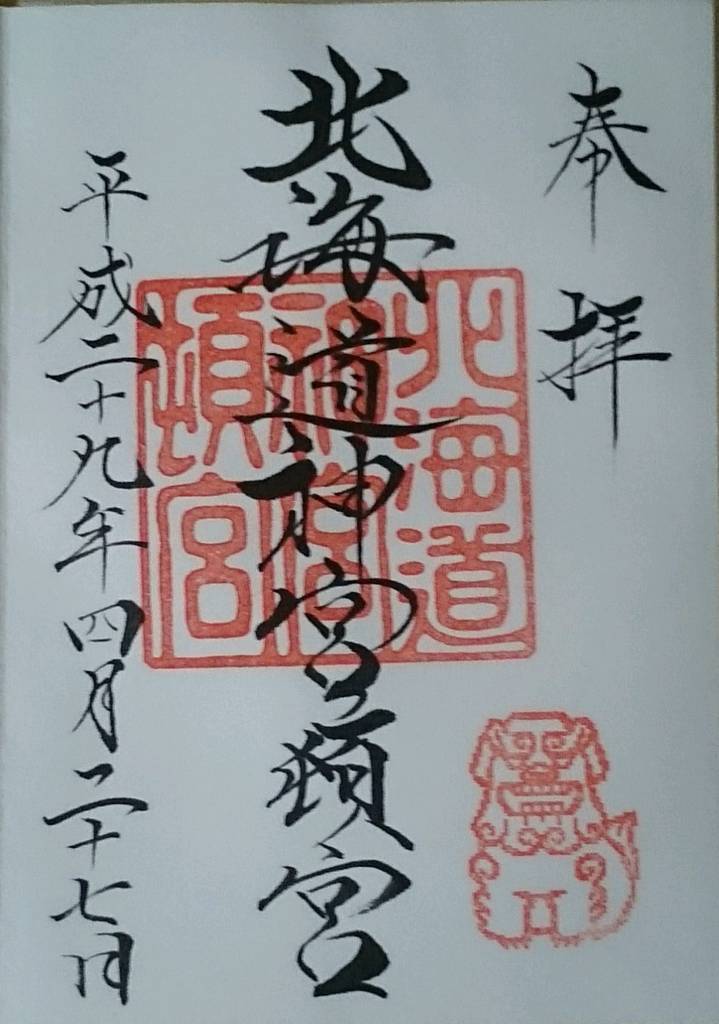 奉拝
北海道神宮頓宮
北海道
神宮
頓宮
平成二十九年四月二十七日